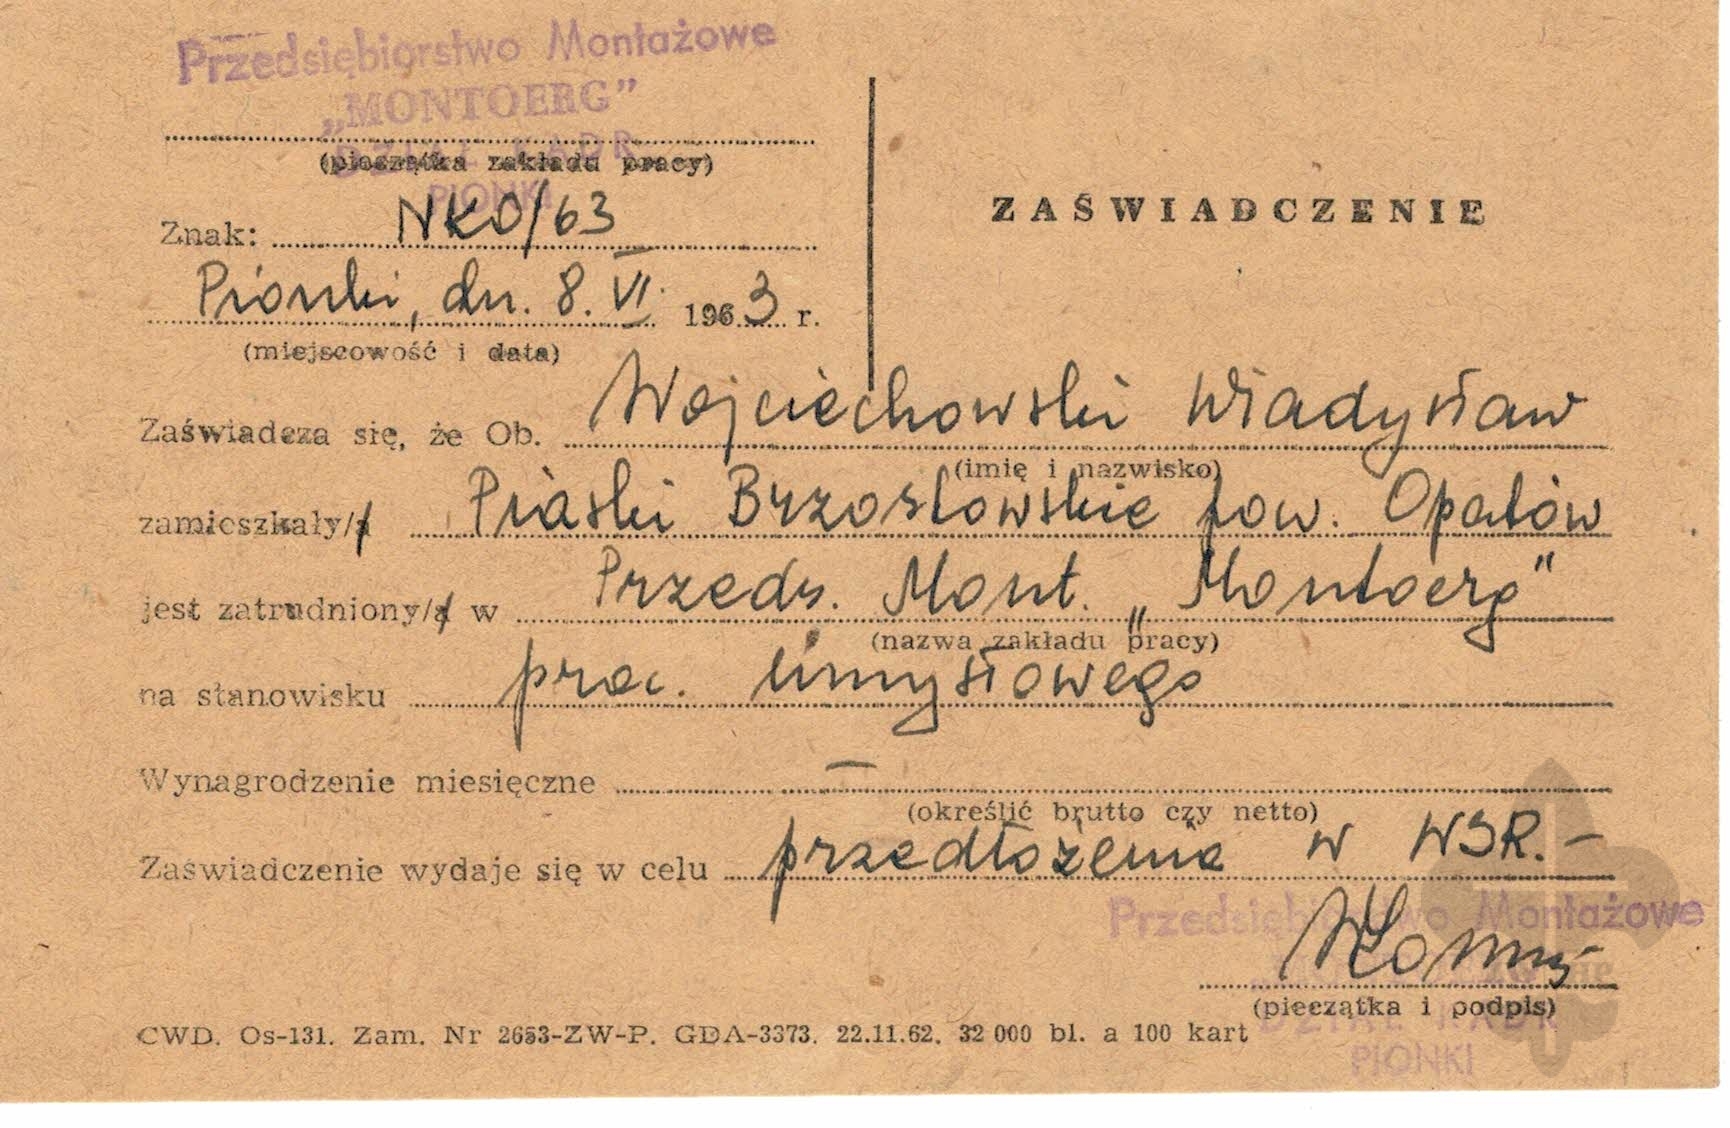 Przedsiębiorstwo Montażowe
„MONTOERG”
DZIAŁ KADR
(pieczątka zakładu pracy)
PIONKI
Znak: NKO/63
Pionki, dn. 8. VI. 1963 r.
(miejscowość i data)
ZAŚWIADCZENIE
Zaświadcza się, że Ob. Wojciechowski Władysław
(imię i nazwisko)
zamieszkały/a Piaski Brzostowskie pow. Opatów
jest zatrudniony/a w Przeds. Mont. „Montoerg"
(nazwa zakładu pracy)
na stanowisku prac. umysłowego
Wynagrodzenie miesięczne —
(określić brutto czy netto)
Zaświadczenie wydaje się w celu przedłożenia w WSR.—
Przedsiębiorstwo Montażowe
(pieczątka i podpis)
DZIAŁ KADR
PIONKI
CWD. Os-131. Zam. Nr 2653-ZW-P. GDA-3373. 22.11.62. 32 000 bl. a 100 kart